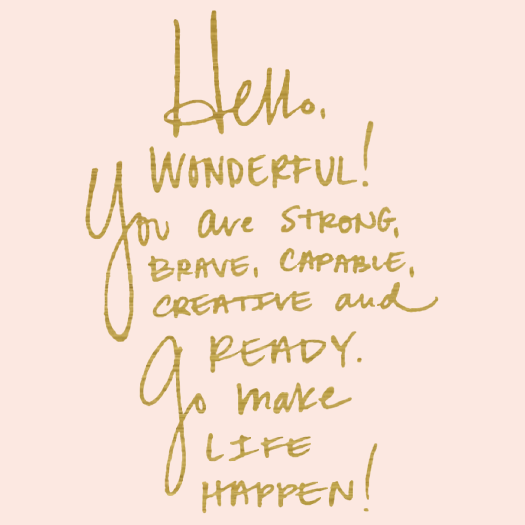 Hello,
WONDERFUL!
You are STRONG,
BRAVE, CAPABLE,
CREATIVE and
READY.
Go make
LIFE
HAPPEN!